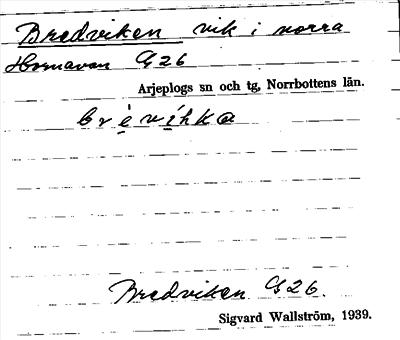 Bredviken vik i norra
Hornavan G26
Arjeplogs sn och tg, Norrbottens län.
brèvíhka
Bredviken G26.
Sigvard Wallström, 1939.